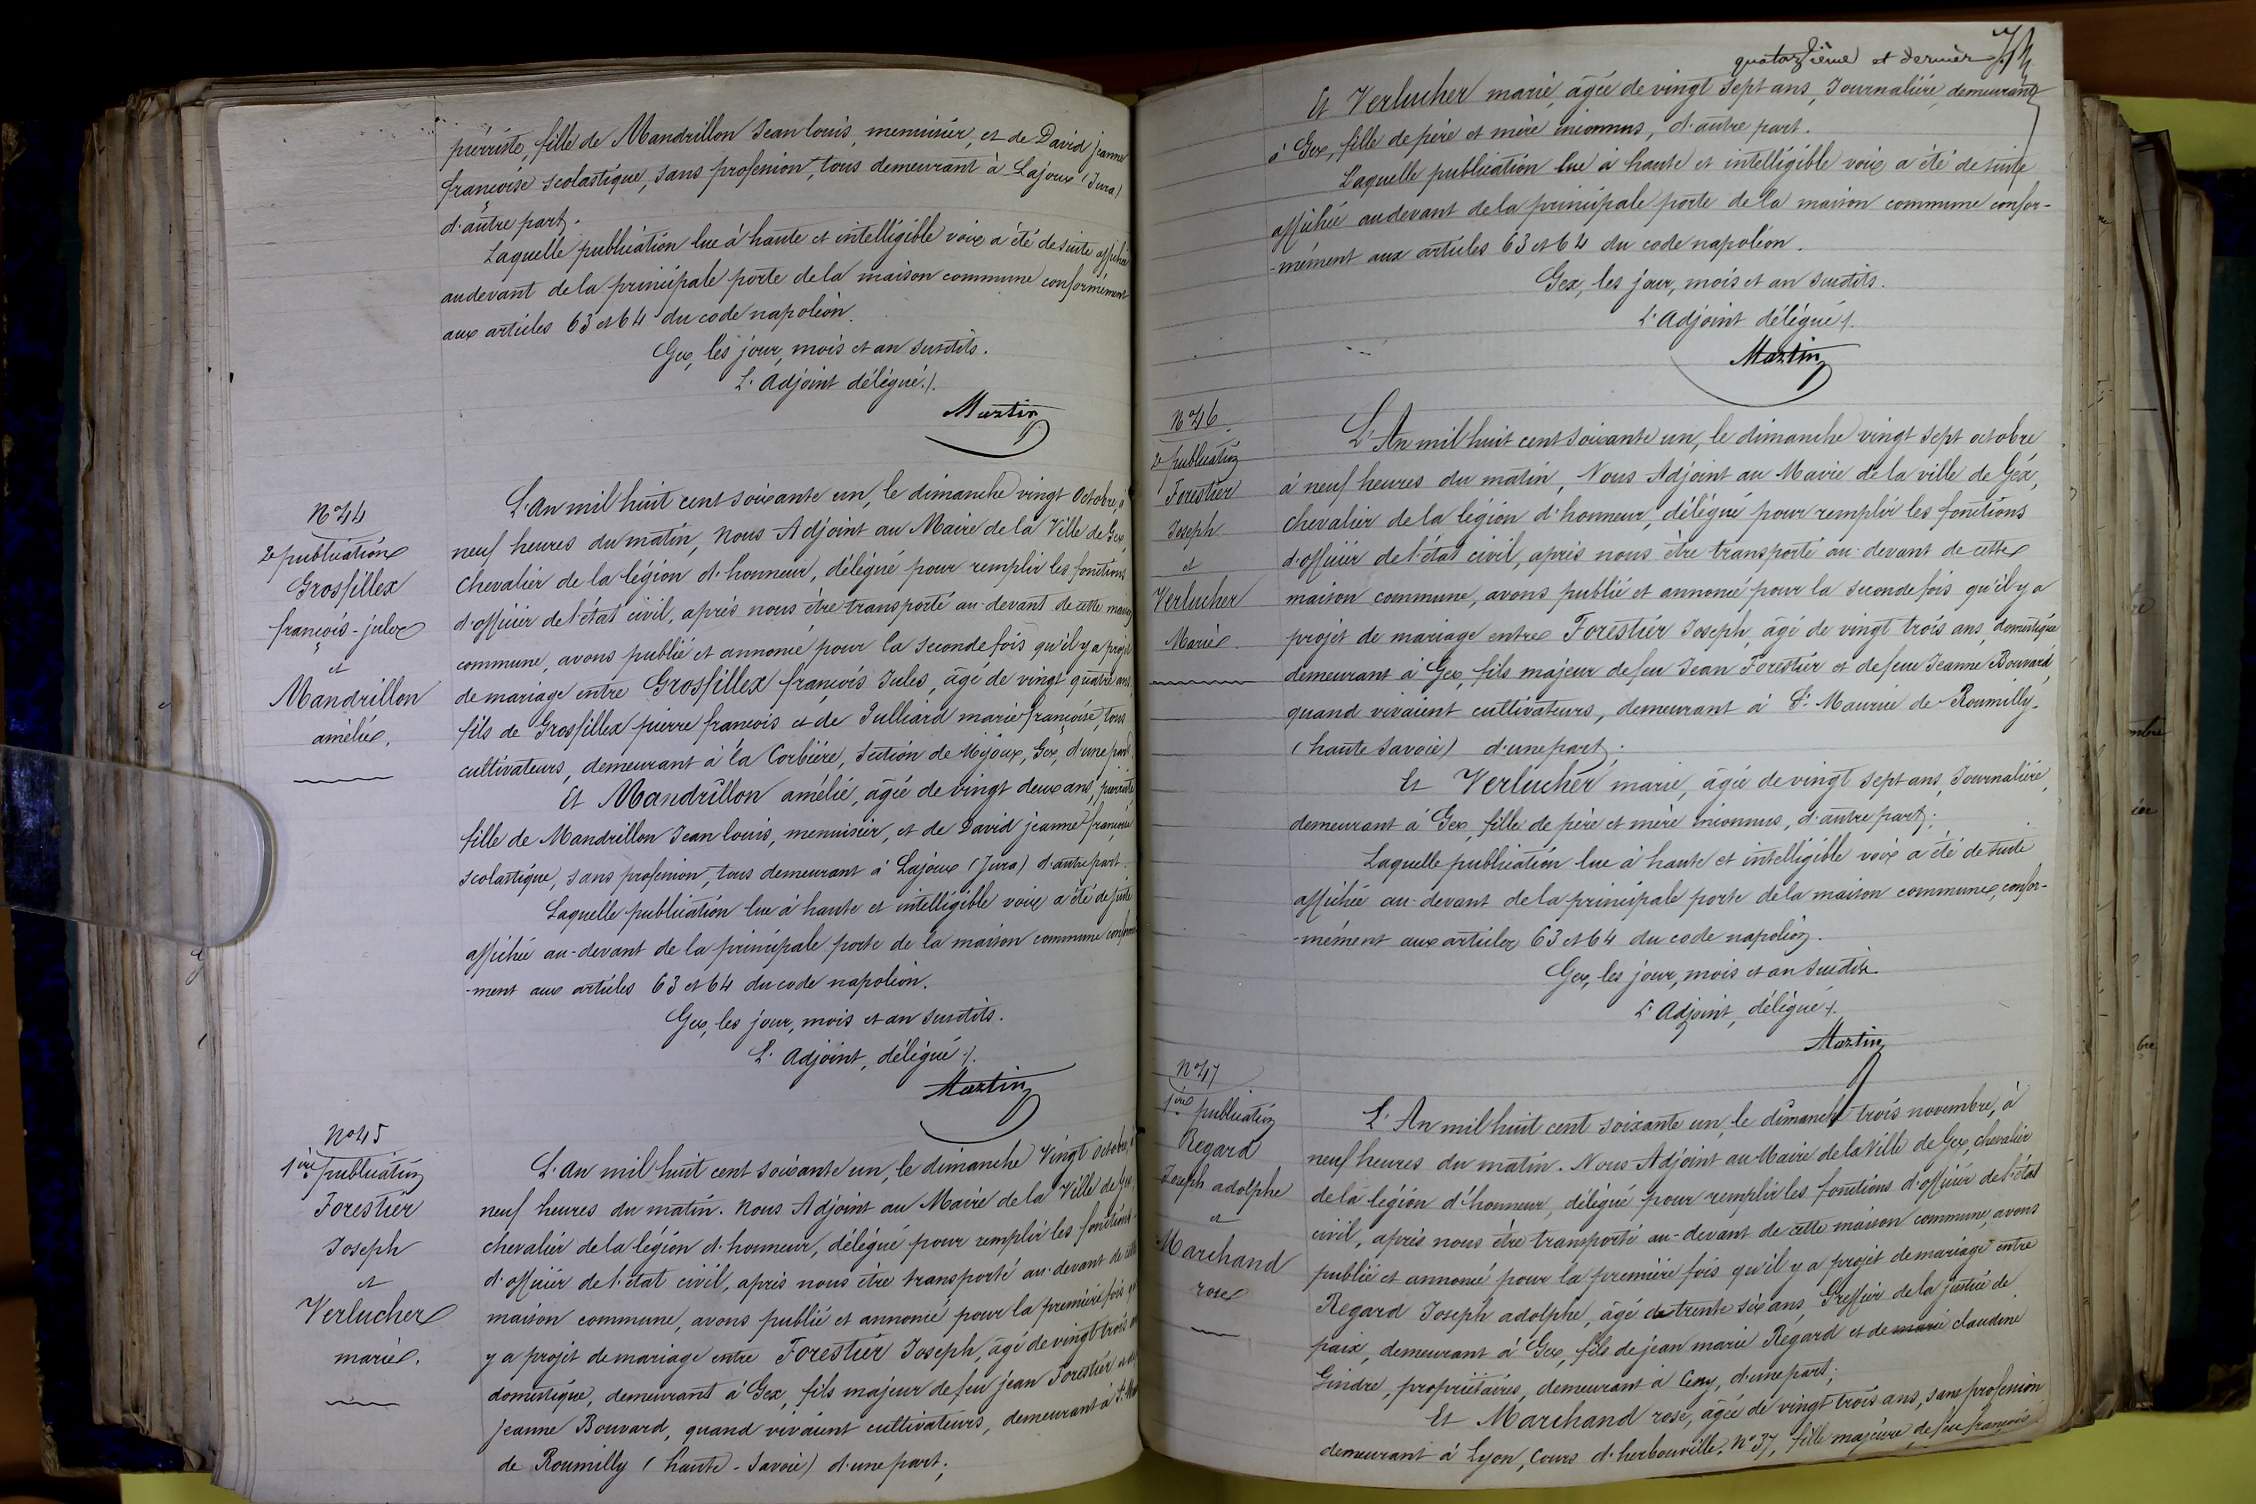 pierriste, fille de Mandrillon Jean louis, menuisier, et de David jeanne
françoise scolastique, sans profession, tous demeurant à Lajoux (Jura)
d'autre part.
Laquelle publication lue à haute et intelligible voix a été de suite affichée
au devant de la principale porte de la maison commune conformément
aux articles 63 et 64 du code napoléon.
Gex, les jour, mois et an susdits.
L'Adjoint délégué /.
Martin
N° 44
2e publication
Grosfillex
françois-jules
et
Mandrillon
amélie.
L'an mil huit cent soixante un, le dimanche vingt Octobre, à
neuf heures du matin, Nous Adjoint au Maire de la Ville de Gex,
chevalier de la légion d'honneur, délégué pour remplir les fonctions
d'officier de l'état civil, après nous être transporté au-devant de cette maison
commune, avons publié et annoncé pour la seconde fois qu'il y a projet
de mariage entre Grosfillex françois Jules, âgé de vingt quatre ans,
fils de Grosfillex pierre françois et de Julliard marie françoise, tous
cultivateurs, demeurant à la Corbière, Section de Mijoux, Gex, d'une part
Et Mandrillon amélie, âgée de vingt deux ans, pierriste
fille de Mandrillon Jean louis, menuisier, et de David jeanne françoise
scolastique, sans profession, tous demeurant à Lajoux (Jura) d'autre part.
Laquelle publication lue à haute et intelligible voix a été de suite
affichée au-devant de la principale porte de la maison commune conformé
-ment aux articles 63 et 64 du code napoléon.
Gex, les jour, mois et an susdits.
L'Adjoint, délégué /.
Martin
N° 45
1ère publication
Forestier
Joseph
et
Verlucher
marie.
L'an mil huit cent soixante un, le dimanche Vingt octobre, à
neuf heures du matin. Nous Adjoint au Maire de la Ville de Gex,
chevalier de la légion d'honneur, délégué pour remplir les fonctions
d'officier de l'état civil, après nous être transporté au-devant de cette
maison commune, avons publié et annoncé pour la première fois qu'il
y a projet de mariage entre Forestier Joseph, âgé de vingt trois ans
domestique, demeurant à Gex, fils majeur de feu jean Forestier et de
jeanne Bouvard, quand vivaient cultivateurs, demeurant à St. Mau
de Roumilly (haute-Savoie) d'une part;
quatorzième et dernier
Et Verlucher marie, âgée de vingt sept ans, Journalière, demeurant
à Gex, fille de père et mère inconnus, d'autre part.
Laquelle publication lue à haute et intelligible voix a été de suite
affichée au devant de la principale porte de la maison commune confor-
-mément aux articles 63 et 64 du code napoléon.
Gex, les jour, mois et an susdits.
L'Adjoint délégué /.
Martin
N° 46
2e publication
Forestier
Joseph
et
Verlucher
Marie.
L'An mil huit cent soixante un, le dimanche vingt sept octobre
à neuf heures du matin, Nous Adjoint au Maire de la ville de Gex,
chevalier de la légion d'honneur, délégué pour remplir les fonctions
d'officier de l'état civil, après nous être transporté au-devant de cette
maison commune, avons publié et annoncé pour la seconde fois qu'il y a
projet de mariage entre Forestier Joseph, âgé de vingt trois ans, domestique
demeurant à Gex, fils majeur de feu Jean Forestier et de feue Jeanne Bouvard,
quand vivaient cultivateurs, demeurant à St. Maurice de Roumilly.
(haute Savoie) d'une part.
Et Verlucher marie, âgée de vingt sept ans, Journalière,
demeurant à Gex, fille de père et mère inconnus, d'autre part.
Laquelle publication lue à haute et intelligible voix a été de suite
affichée au-devant de la principale porte de la maison commune, confor-
-mément aux articles 63 et 64 du code napoléon.
Gex, les jour, mois et an susdits
L'Adjoint, délégué /.
Martin
N° 47
1ère publication
Regard
Joseph adolphe
et
Marchand
rose
L'An mil huit cent soixante un, le dimanche trois novembre, à
neuf heures du matin. Nous Adjoint au Maire de la Ville de Gex, chevalier
de la légion d'honneur, délégué pour remplir les fonctions d'officier de l'état
civil, après nous être transporté au-devant de cette maison commune, avons
publié et annoncé pour la première fois qu'il y a projet de mariage entre
Regard Joseph adolphe, âgé de trente six ans Greffier de la justice de
paix, demeurant à Gex, fils de jean marie Regard et de marie claudine
Gindre, propriétaires, demeurant à Cezy, d'une part;
Et Marchand rose, âgée de vingt trois ans, sans profession
demeurant à Lyon, Cours d'herbouville, N° 37, fille majeure de feu françois